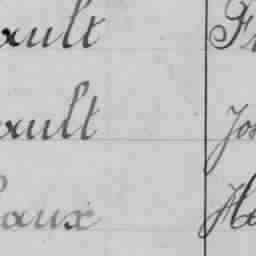 ault Fr
ault Jos
aux He